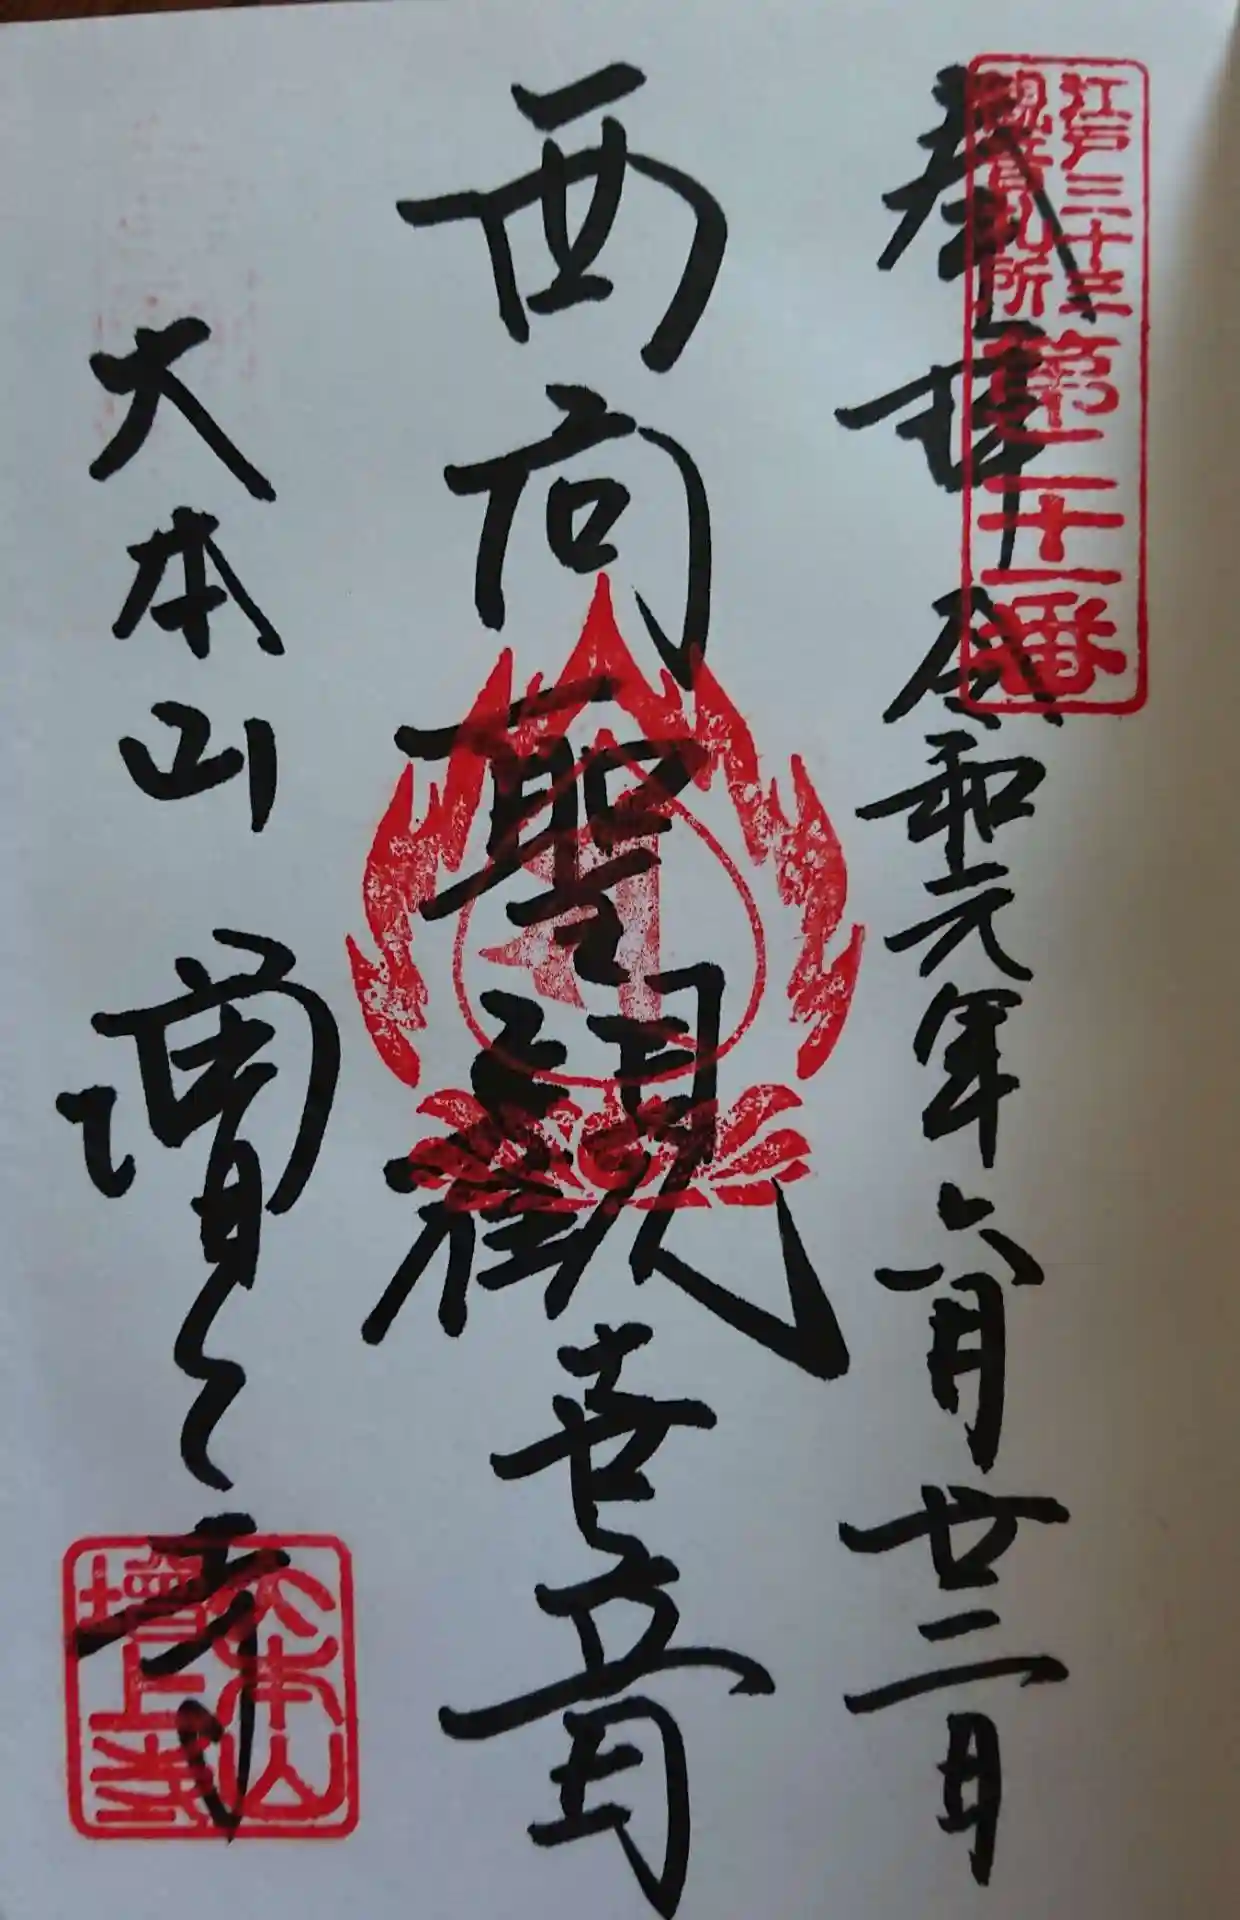 江戸三十三
観世音札所
第二十一番
奉拝 令和元年六月廿二日
西向聖観世音
大本山 増上寺
大本山
増上寺